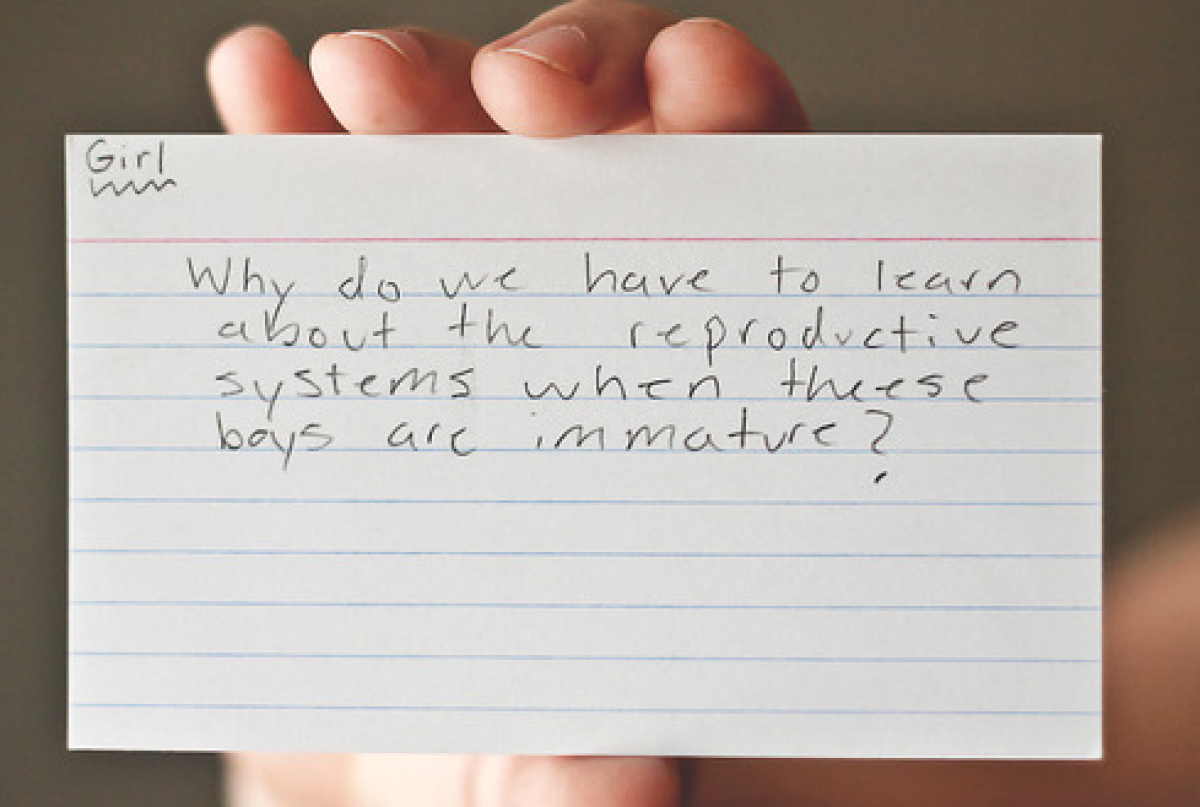 Girl
Why do we have to learn
about the reproductive
systems when theese
boys are immature?